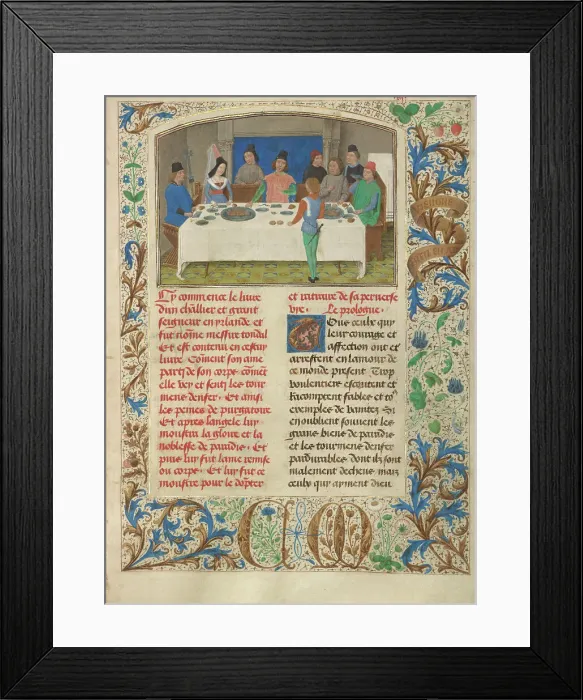 Cy commence le livre
dun chlllier et grant
seigneur en yrlande et
fut nōme messire tondal
Et est contenu en cestuy
livre Cōment son ame
parti de son corps cōmēt
elle vey et senti les tour
mens denfer · Et ainsi
les peines de purgatoire
Et apres langele luy
moustra la gloire et la
noblesse de paradis · Et
puis luy fut lame remise
ou corps · Et luy fut ce
moustre pour le doster
et retraire de sa perverse
vye · Le prologue ·
Ous ceulx qui
leur courage et
affection ont et
arrestent en lamour de
ce monde present Trop
voulentiers escoutent et
Racomptent fables et
exemples de vanitez Si
en oublient souvent les
grans biens de paradis
et les tourmens denfer
pardurables dont ilz sont
malement deceus maiz
ceulx qui ayment dieu